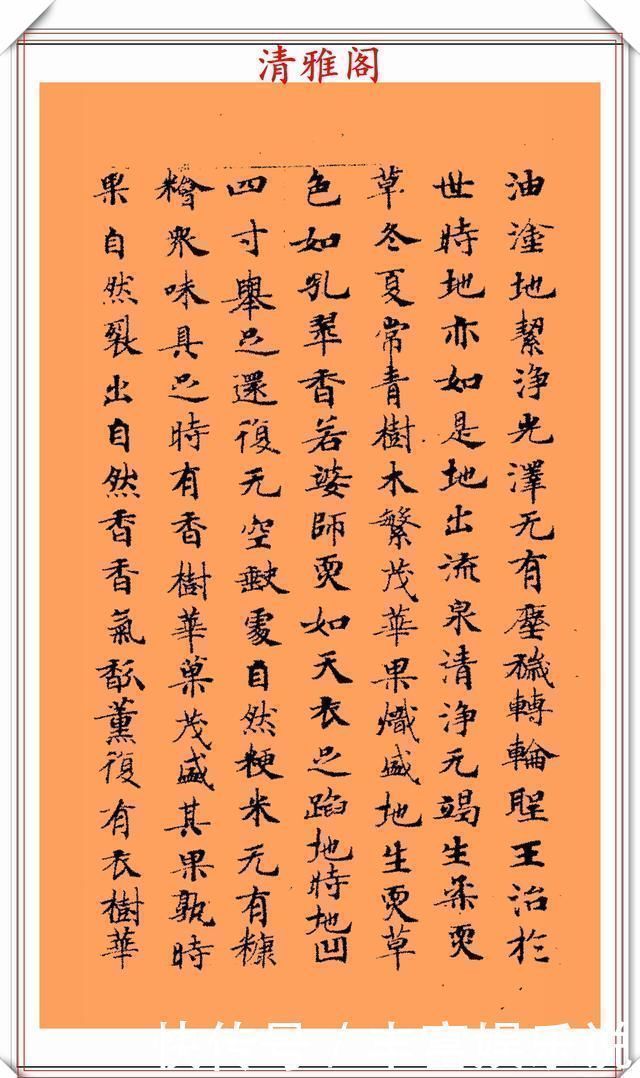 清雅阁
油塗地絜淨光澤无有塵穢轉輪聖王治於
世時地亦如是地出流泉清淨无竭生柔耎
草冬夏常青樹木繁茂華果熾盛地生耎草
色如乳翠香若婆師耎如天衣足蹈地時地凹
四寸舉足還復无空缺處自然粳米无有糠
糩衆味具足時有香樹華菓茂盛其果孰時
果自然裂出自然香香氣馚薰復有衣樹華